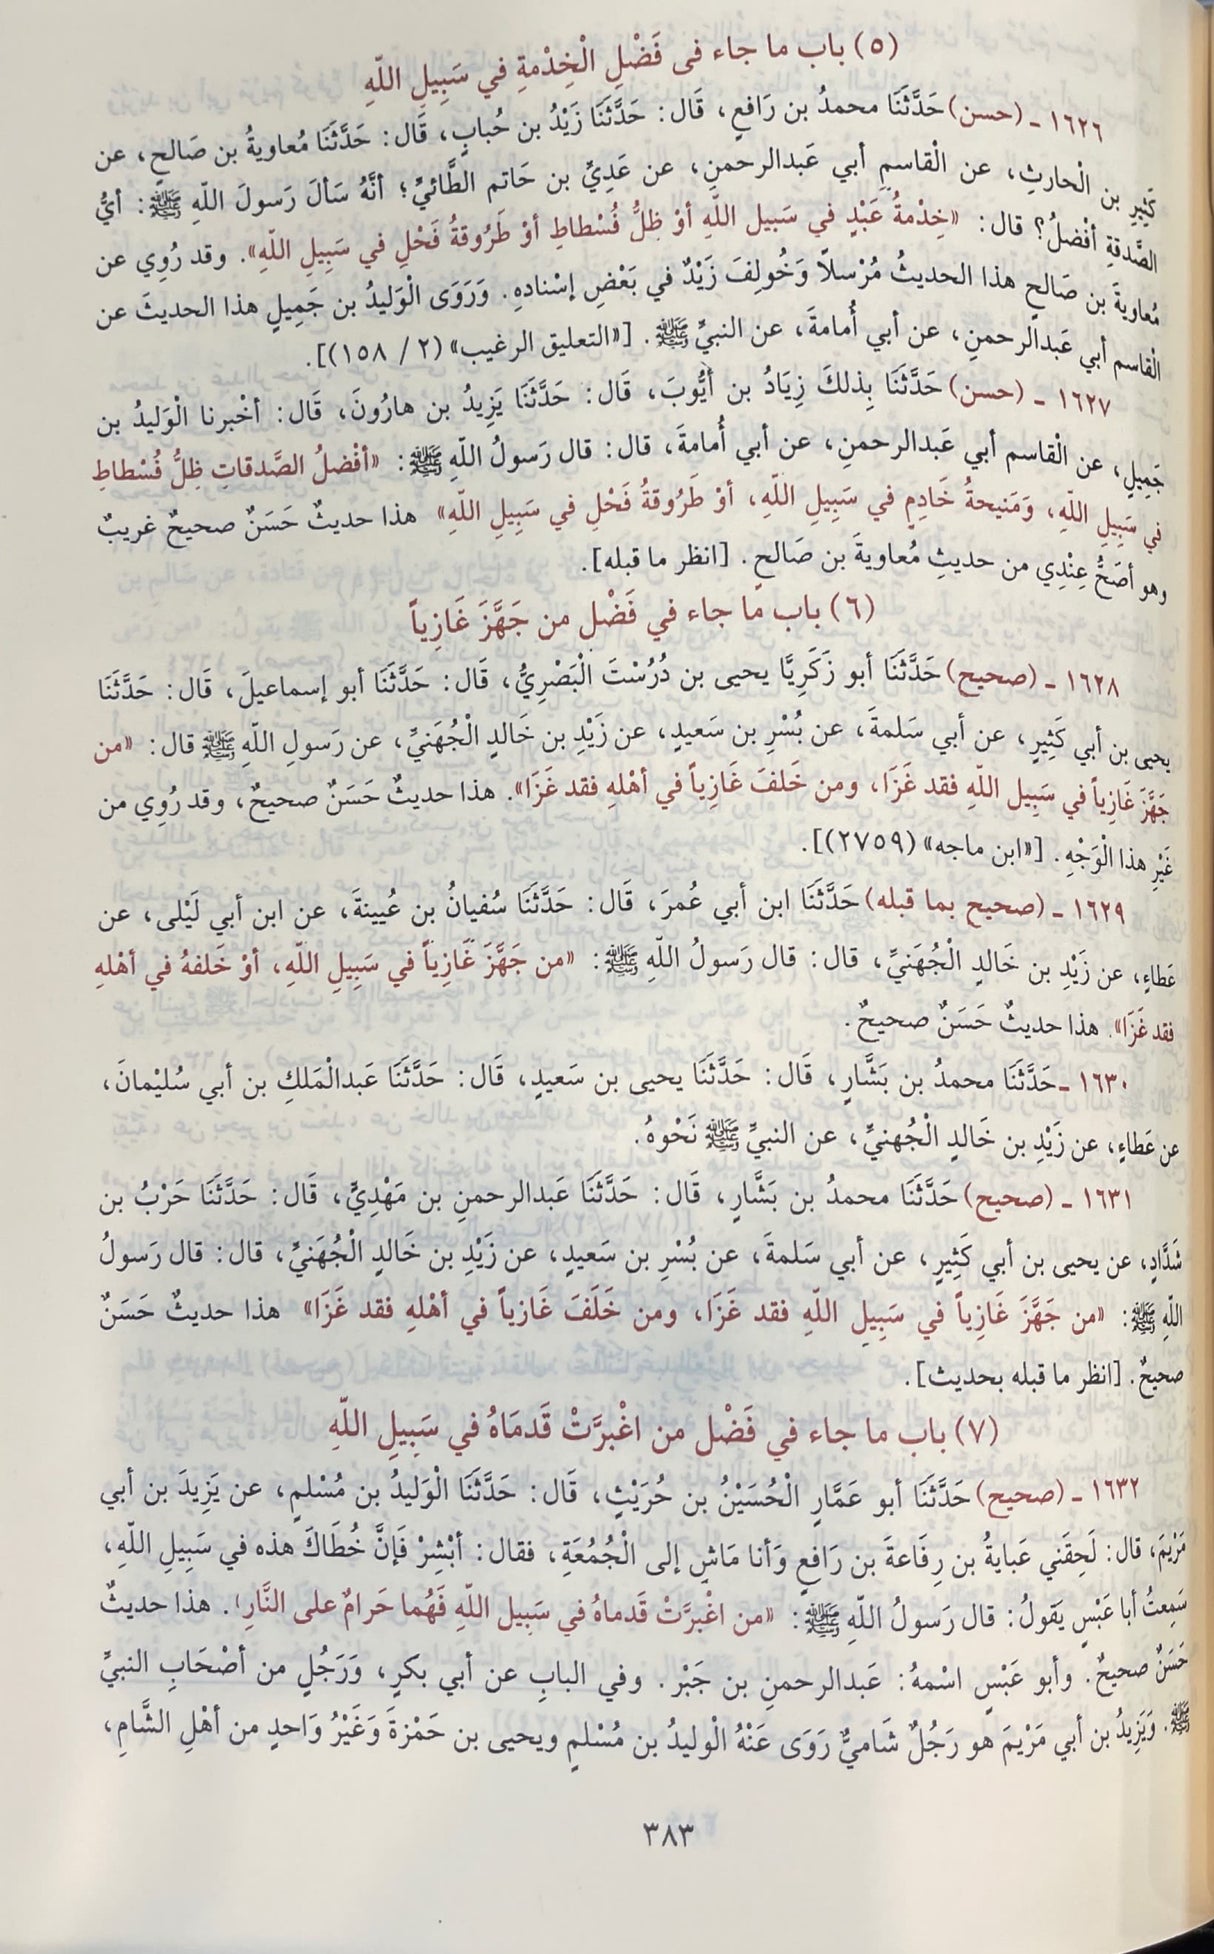 (٥) باب ما جاء فى فَضْلِ الْخِدْمةِ في سَبِيلِ اللّهِ
١٦٢٦ ـ (حسن) حَدَّثَنَا محمدُ بن رَافعٍ، قَال: حَدَّثَنَا زَيْدُ بن حُبابٍ، قَال: حَدَّثَنَا مُعاويةُ بن صَالحٍ، عن
كَثِيرِ بن الْحارثِ، عن الْقاسمِ أبي عَبدالرحمنِ، عن عَدِيِّ بن حَاتم الطَّائيِّ؛ أنَّهُ سَألَ رَسولَ اللّهِ ﷺ: أيُّ
الصَّدقةِ أفْضلُ؟ قال: «خِدْمةُ عَبْدٍ في سَبيل اللّهِ أوْ ظِلُّ فُسْطاطِ أوْ طَرُوقةُ فَحْلِ في سَبِيلِ اللّهِ». وقد رُوِي عن
مُعاويةَ بن صَالحٍ هذا الحديثُ مُرْسلاً وَخُولِفَ زَيْدٌ في بَعْضِ إسْنادهِ. وَرَوَى الْوَليدُ بن جَمِيلٍ هذا الحديثَ عن
الْقاسم أبي عَبدالرحمنِ، عن أبي أُمامةَ، عن النبيِّ ﷺ. [«التعليق الرغيب» (٢ / ١٥٨)].
١٦٢٧ ـ (حسن) حَدَّثَنَا بِذلكَ زِيَادُ بن أيُّوبَ، قَال: حَدَّثَنَا يَزِيدُ بن هارُونَ، قَال: أخْبرنا الْوَليدُ بن
جَمِيلٍ، عن الْقاسم أبي عَبدالرحمنِ، عن أبي أُمامةَ، قال: قال رَسولُ اللّهِ ﷺ: «أفْضلُ الصَّدقاتِ ظِلُّ فُسْطاطِ
في سَبِيلِ اللّهِ، وَمَنيحةُ خَادِمٍ في سَبِيلِ اللّهِ، أوْ طَرُوقةُ فَحْلِ في سَبِيلِ اللّهِ» هذا حديثٌ حَسَنٌ صحيحٌ غريبٌ
وهو أصَحُّ عِنْدِي من حديثِ مُعاويةَ بن صَالحٍ. [انظر ما قبله].
(٦) باب ما جاء في فَضْل من جَهَّزَ غَازِياً
١٦٢٨ ـ (صحيح) حَدَّثَنَا أبو زَكَرِيَّا يحيى بن دُرُسْتَ الْبَصْرِيُّ، قَال: حَدَّثَنَا أبو إسماعيلَ، قَال: حَدَّثَنَا
يحيى بن أبي كَثِيرٍ، عن أبي سَلمةَ، عن بُسْرِ بن سَعيدٍ، عن زَيْدِ بن خَالدٍ الْجُهَنيِّ، عن رَسولِ اللّهِ ﷺ قال: «من
جَهَّزَ غَازِياً في سَبِيل اللّهِ فقد غَزَا، ومن خَلفَ غَازِياً في أهْلهِ فقد غَزَا». هذا حديثٌ حَسَنٌ صحيحٌ، وقد رُوِي من
غَيْرِ هذا الْوَجْهِ. [«ابن ماجه» (٢٧٥٩)].
١٦٢٩ ـ (صحيح بما قبله) حَدَّثَنَا ابن أبي عُمرَ، قَال: حَدَّثَنَا سُفيانُ بن عُيينةَ، عن ابن أبي لَيْلى، عن
عَطاءٍ، عن زَيْدِ بن خَالدٍ الْجُهَنيِّ، قال: قال رَسولُ اللّهِ ﷺ: «من جَهَّزَ غَازِياً في سَبِيلِ اللّهِ، أوْ خَلفهُ في أهْلهِ
فقد غَزَا». هذا حديثٌ حَسَنٌ صحيحٌ.
١٦٣٠ ـ حَدَّثَنَا محمدُ بن بَشَّارٍ، قَال: حَدَّثَنَا يحيى بن سَعيدٍ، قَال: حَدَّثَنَا عَبدالْمَلكِ بن أبي سُليْمانَ،
عن عَطاءٍ، عن زَيْدِ بن خَالدٍ الْجُهنيِّ، عن النبيِّ ﷺ نَحْوهُ.
١٦٣١ ـ (صحيح) حَدَّثَنَا محمدُ بن بَشَّارٍ، قَال: حَدَّثَنَا عَبدالرحمنِ بن مَهْدِيٍّ، قَال: حَدَّثَنَا حَرْبُ بن
شَدَّادٍ، عن يحيى بن أبي كَثِيرٍ، عن أبي سَلمةَ، عن بُسْرِ بن سَعيدٍ، عن زَيْدِ بن خَالدٍ الْجُهَنيِّ، قال: قال رَسولُ
اللّهِ ﷺ: «من جَهَّزَ غَازِياً في سَبِيلِ اللّهِ فقد غَزَا، ومن خَلَفَ غَازياً في أهْلهِ فقد غَزَا» هذا حديثٌ حَسَنٌ
صحيحٌ. [انظر ما قبله بحديث].
(٧) باب ما جاء في فَضْل من اغْبرَّتْ قَدمَاهُ في سَبِيلِ اللّهِ
١٦٣٢ ـ (صحيح) حَدَّثَنَا أبو عَمَّارٍ الْحُسَيْنُ بن حُرَيْثٍ، قَال: حَدَّثَنَا الْوَليدُ بن مُسْلمٍ، عن يَزِيدَ بن أبي
مَرْيَمَ، قال: لَحِقَني عَبايةُ بن رِفَاعةَ بن رَافعٍ وَأنا مَاشٍ إلى الْجُمُعَةِ، فقال: أبْشِرْ فَإنَّ خُطَاكَ هذه في سَبِيلِ اللّهِ،
سَمِعتُ أبا عَبْسٍ يَقولُ: قال رَسولُ اللّهِ ﷺ: «من اغْبرَّتْ قَدماهُ في سَبِيل اللّهِ فَهُما حَرامٌ على النَّارِ». هذا حديثٌ
حَسَنٌ صحيحٌ. وأبو عَبْسٍ اسْمهُ: عَبدالرحمنِ بن جَبْر. وفي البابِ عن أبي بكرٍ، وَرَجُلٍ من أصْحَابِ النبيِّ
ﷺ. وَيَزِيدُ بن أبي مَرْيَمَ هو رَجُلٌ شَاميٌّ رَوَى عَنْهُ الْوليدُ بن مُسْلمٍ ويحيى بن حَمْزةَ وَغَيْرُ وَاحدٍ من أهْلِ الشَّامِ،
٣٨٣